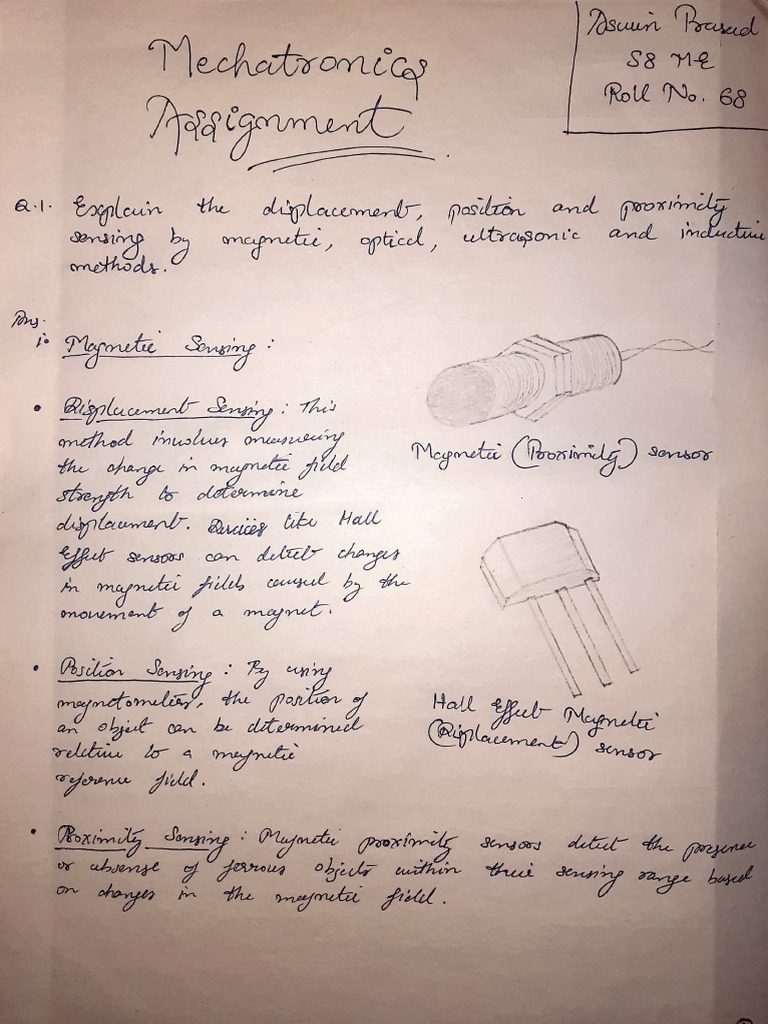 Mechatronics
Assignment
Aswin Prasad
S8 ME
Roll No. 68
Q.1. Explain the displacement, position and proximity
sensing by magnetic, optical, ultrasonic and inductive
methods.
Ans.
i. Magnetic Sensing :
• Displacement Sensing : This
method involves measuring
the change in magnetic field
strength to determine
displacement. Devices like Hall
Effect sensors can detect changes
in magnetic fields caused by the
movement of a magnet.
Magnetic (Proximity) sensor
• Position Sensing : By using
magnetometers, the position of
an object can be determined
relative to a magnetic
reference field.
Hall Effect Magnetic
(Displacement) sensor
• Proximity Sensing : Magnetic proximity sensors detect the presence
or absense of ferrous objects within their sensing range based
on changes in the magnetic field.